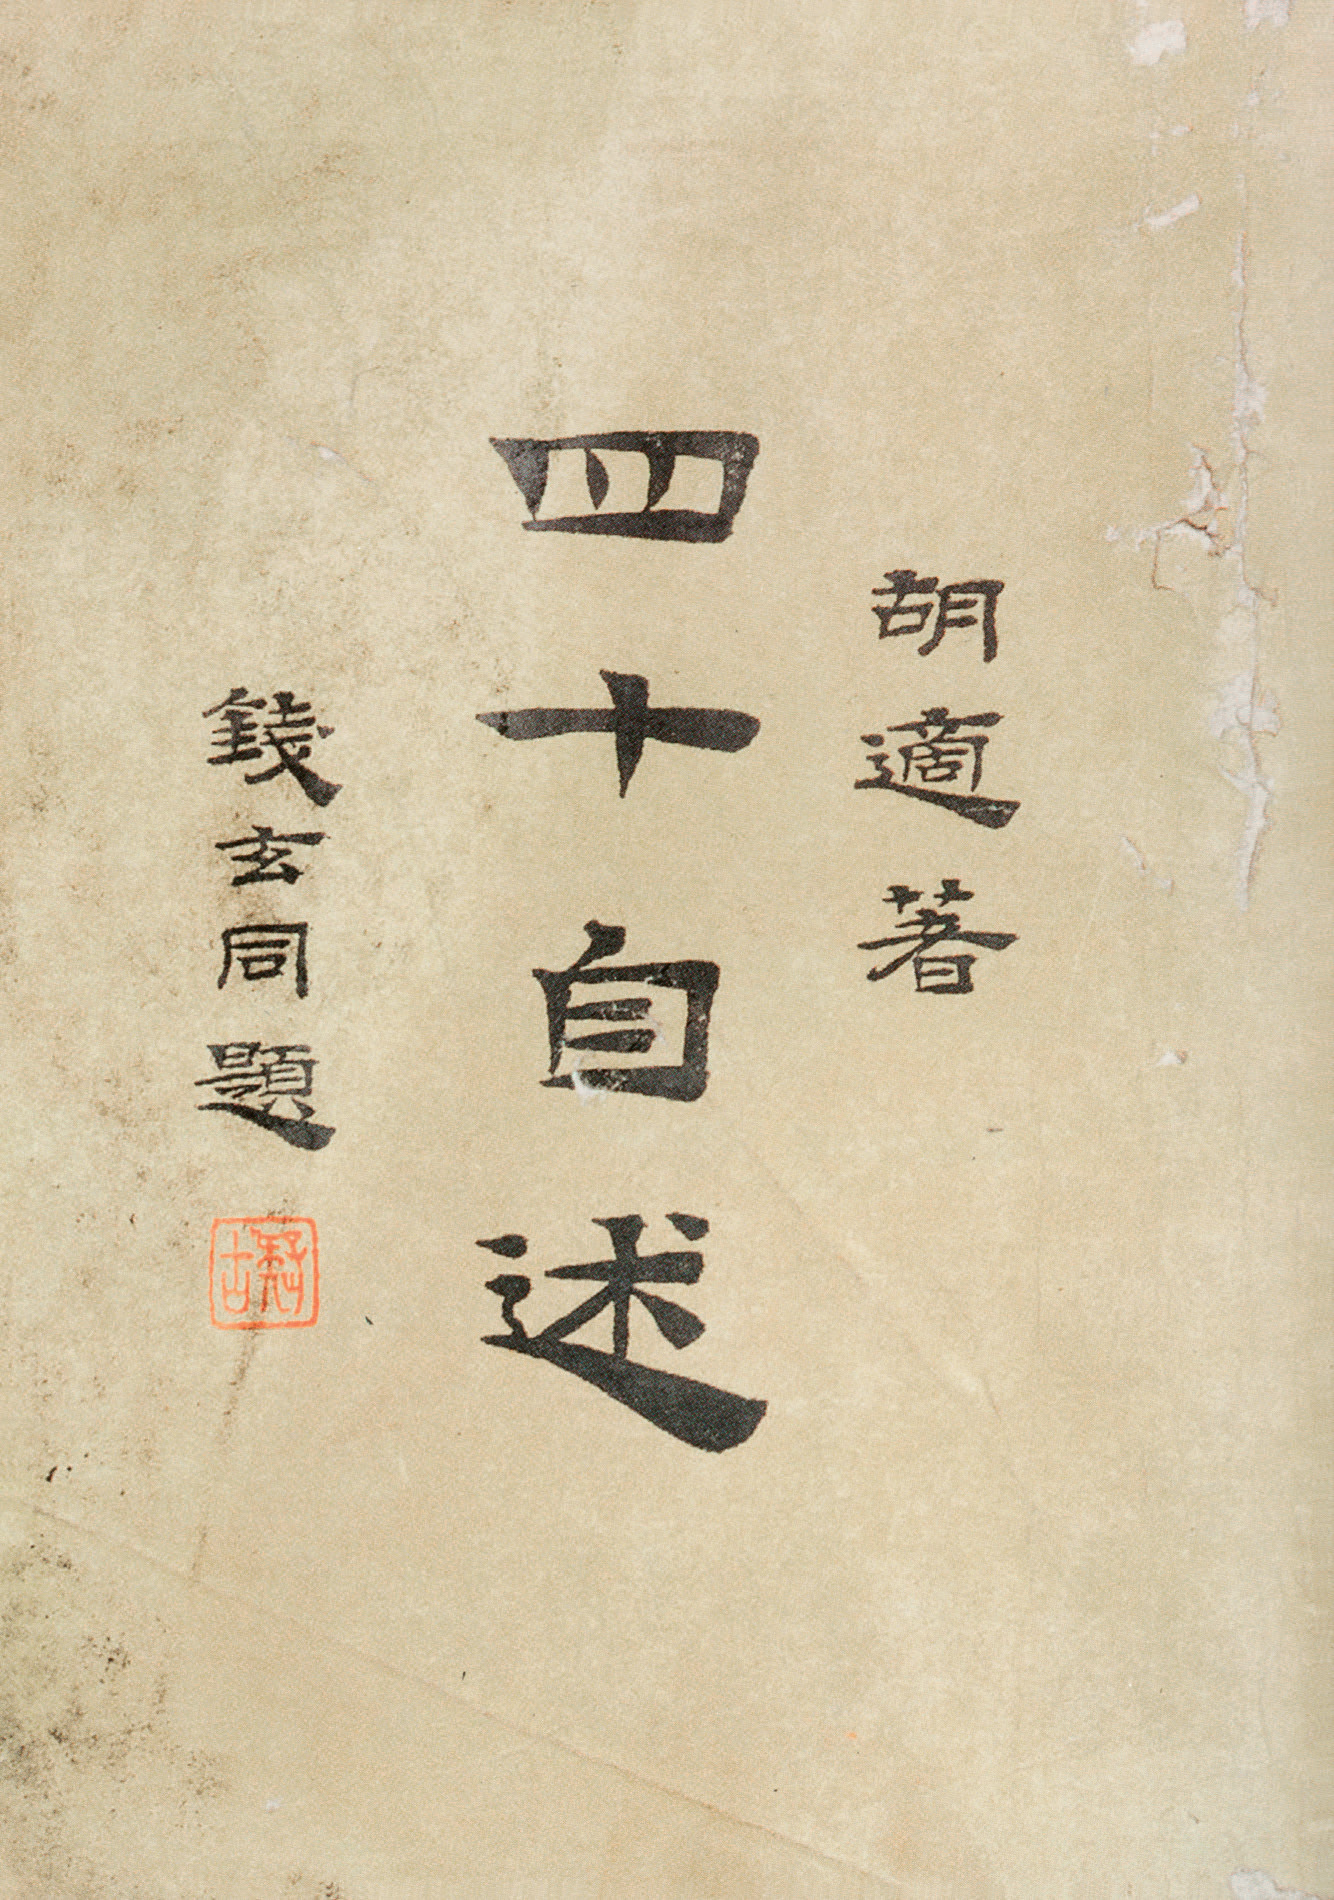 胡適著
四十自述
錢玄同題